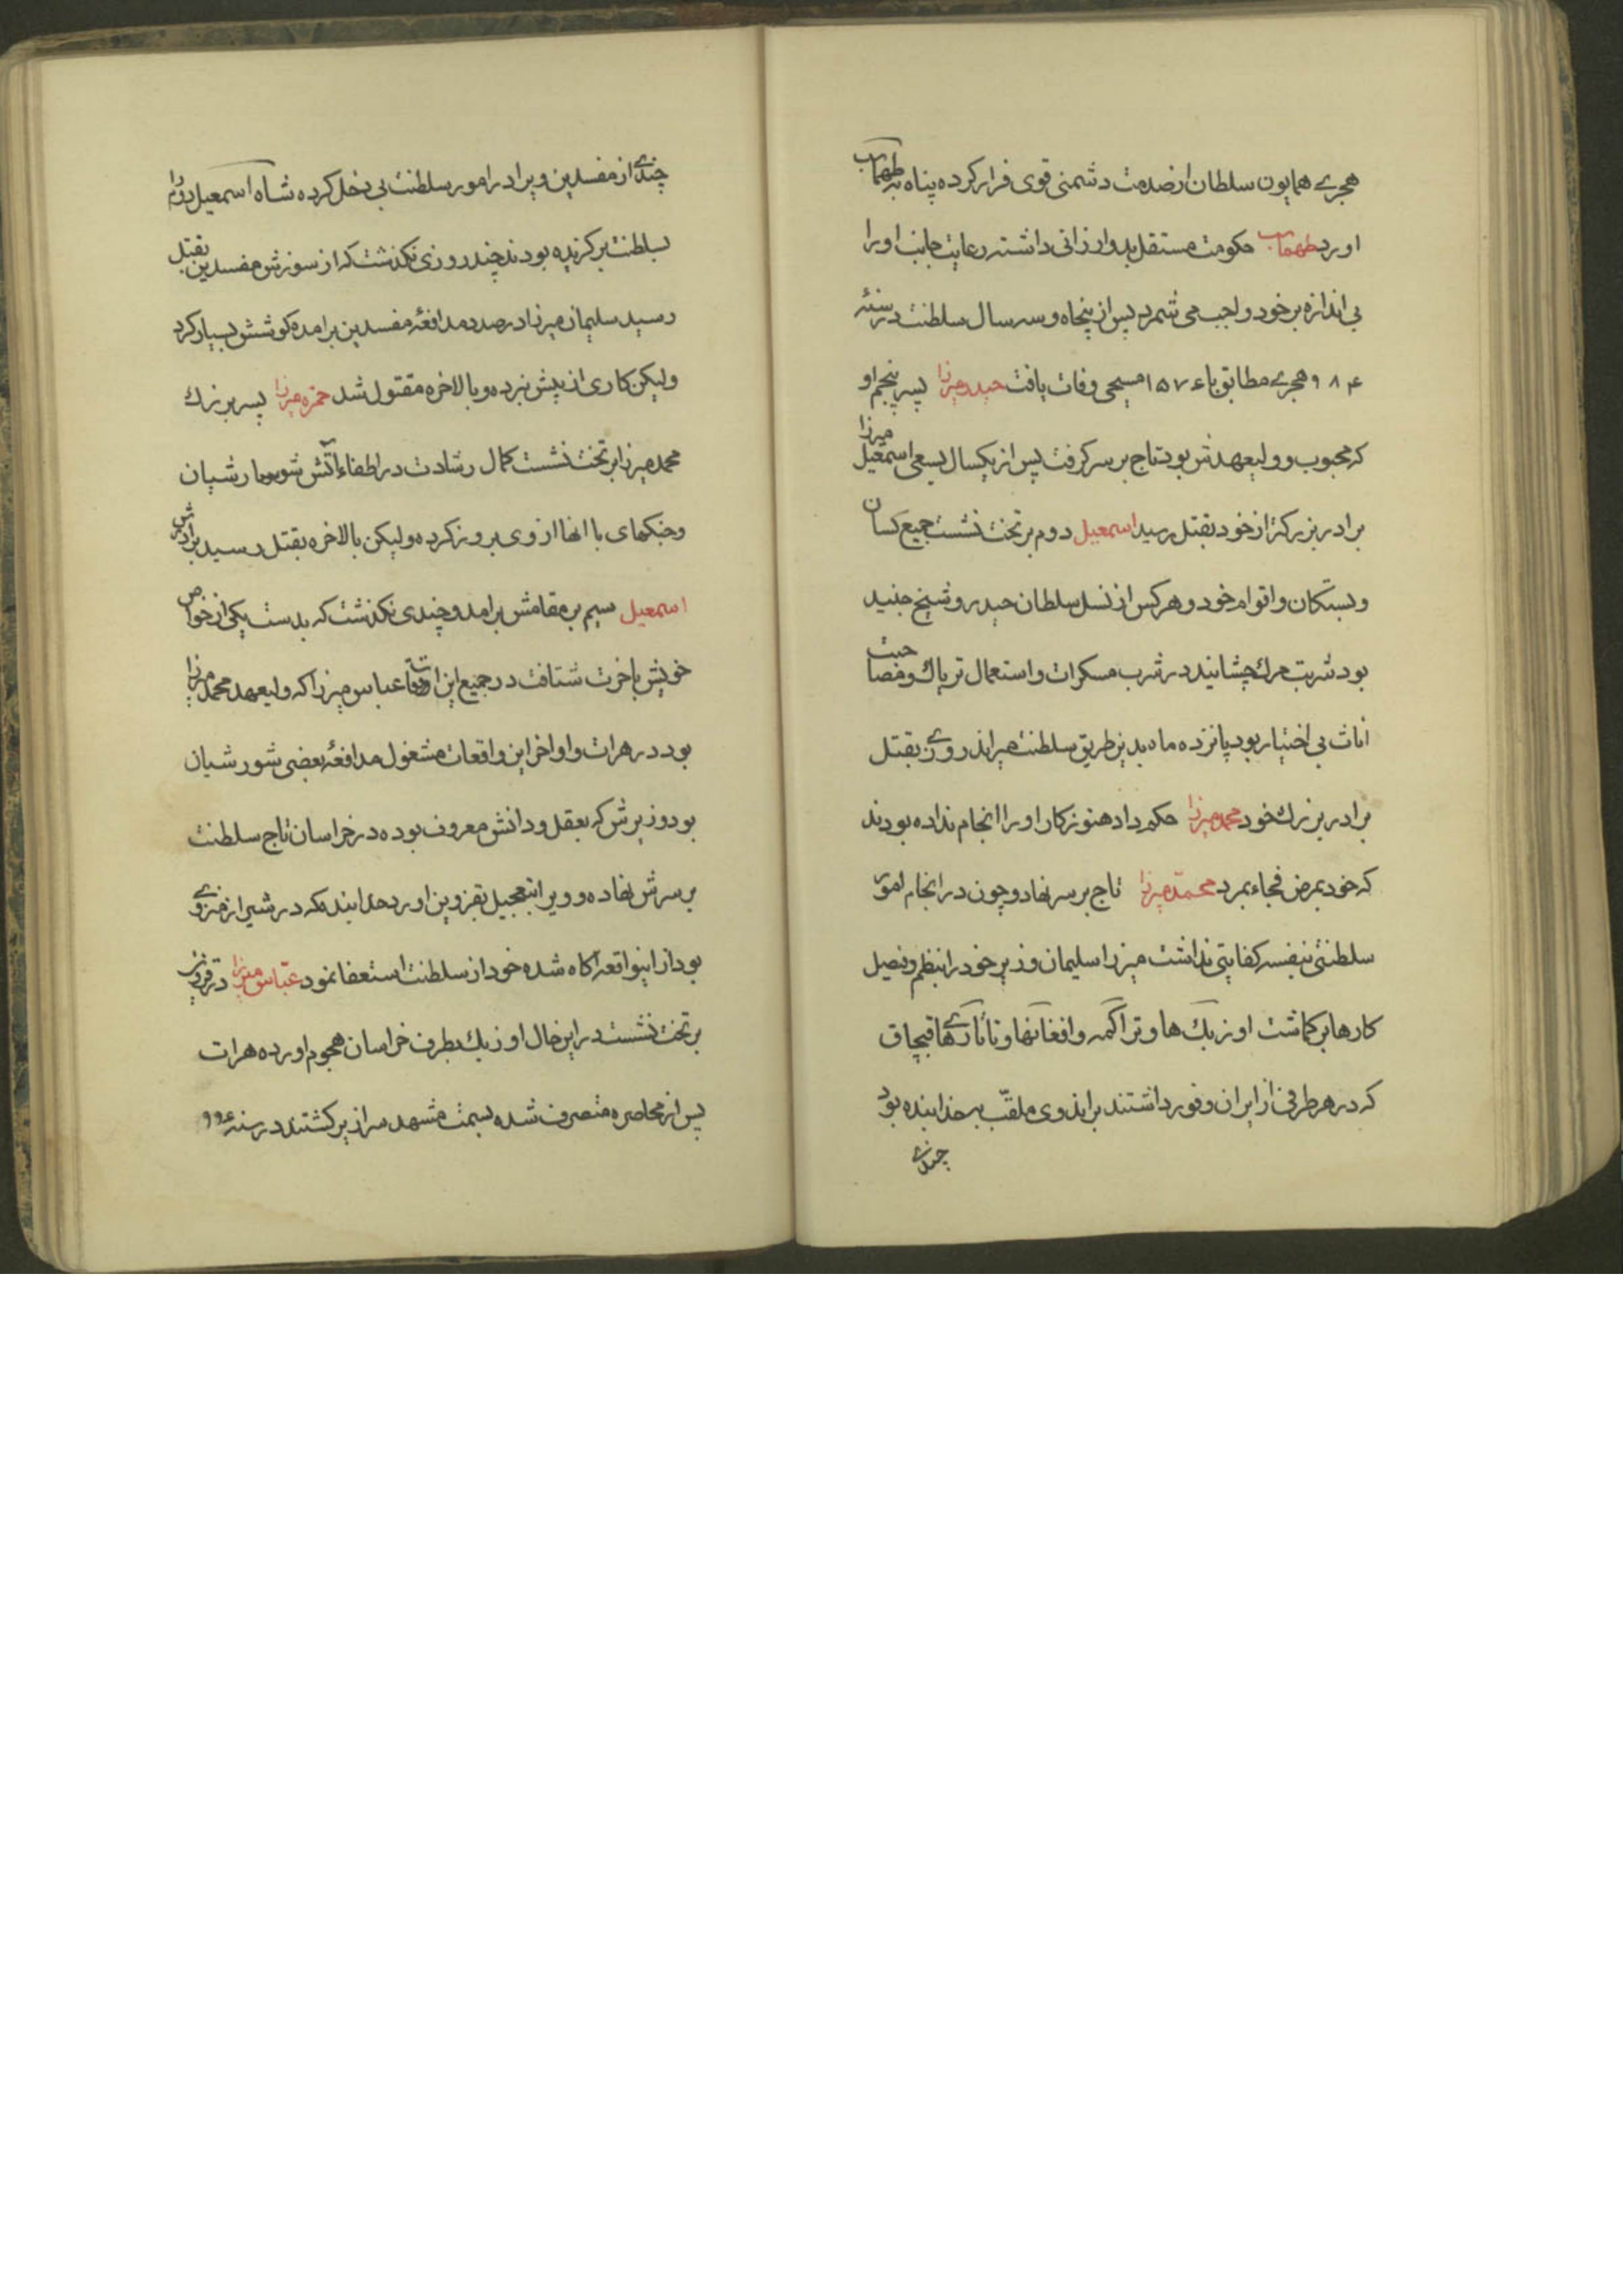 هجری همایون سلطان از صدمت دشمنی قوی فرار کرده پناه به طهماسب
اورد طهماسب حکومت مستقل بدو ارزانی داشته رعایت جانب او را
بی اندازه بر خود واجب می شمرد پس از پنجاه و سه سال سلطنت در سنهٔ
۹۸۴ هجری مطابق با ۱۵۷۶ مسیحی وفات یافت حیدر میرزا پسر پنجم او
که محبوب و ولیعهدش بود تاج بر سر کرفت پس از یکسال بسعی اسمعیل میرزا
برادر بزرکتر از خود بقتل رسید اسمعیل دوم بر تخت نشست جمیع کسان
و بستکان و اقوام خود و هر کس از نسل سلطان حیدر و شیخ جنید
بود شربت مرك چشانید در شرب مسکرات و استعمال تریاك و مصاحبت
اناث بی اختیار بود پانزده ماه بدین طریق سلطنت میراند روزی بقتل
برادر بزرك خود محمد میرزا حکم داد هنوز کار او را انجام نداده بودند
که خود بمرض فجاء بمرد محمد میرزا تاج بر سر نهاد و چون در انجام امور
سلطنتی بنفسه کفایتی نداشت میرزا سلیمان وزیر خود را بنظم و فصیل
کارها بر کماشت اوزبك ها و تراکمه و افغانها و تاتارهای قبچاق
که در هر طرفی از ایران وفور داشتند براندوی ملقب به خدابنده بود
چندی
چندی از مفسدین ویرا در امور سلطنت بی دخل کرده شاه اسمعیل دوم را
بسلطنت بر کزیده بودند چند روزی نکذشت که از سوزش مفسدین بقتل
رسید سلیمان میرزا در صدد مدافعهٔ مفسدین برامده کوشش بسیار کرد
ولیکن کاری از پیش نبرده و بالاخره مقتول شد حمزه میرزا پسر بزرك
محمد میرزا بر تخت نشست کمال رشادت در اطفاء آتش شورشیان
و جنکهای با انها از وی بروز کرده ولیکن بالاخره بقتل رسید برادرش
اسمعیل سیم بر مقامش برامد و چندی نکذشت که بدست یکی از خواص
خویش باخرت شتافت در جمیع این اوقات عباس میرزا که ولیعهد محمد میرزا
بود در هرات و اواخر این واقعات مشغول مدافعهٔ بعضی شورشیان
بود وزیرش که بعقل و دانش معروف بوده در خراسان تاج سلطنت
بر سرش نهاده و ویرا بتعجیل بقزوین اورد خدابنده که در شیراز منزوی
بود از اینواقعه آکاه شده خود از سلطنت استعفا نمود عباس میرزا در قزوین
بر تخت نشست در این حال اوزبك بطرف خراسان هجوم اورده هرات
پس از محاصره متصرف شده بسمت مشهد سرازیر کشتند در سنه ۹۹۶